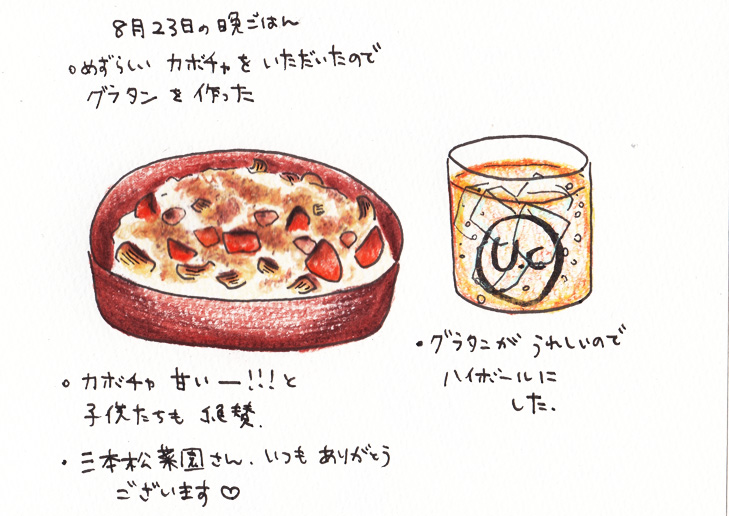 8月23日の晩ごはん
○めずらしい カボチャを いただいたので
グラタン を 作った
U.C
○ カボチャ 甘いー!!!と
子供たちも 絶賛.
・三本松菜園さん. いつも ありがとう
ございます♡
・グラタンが うれしいので
ハイボールに
した.